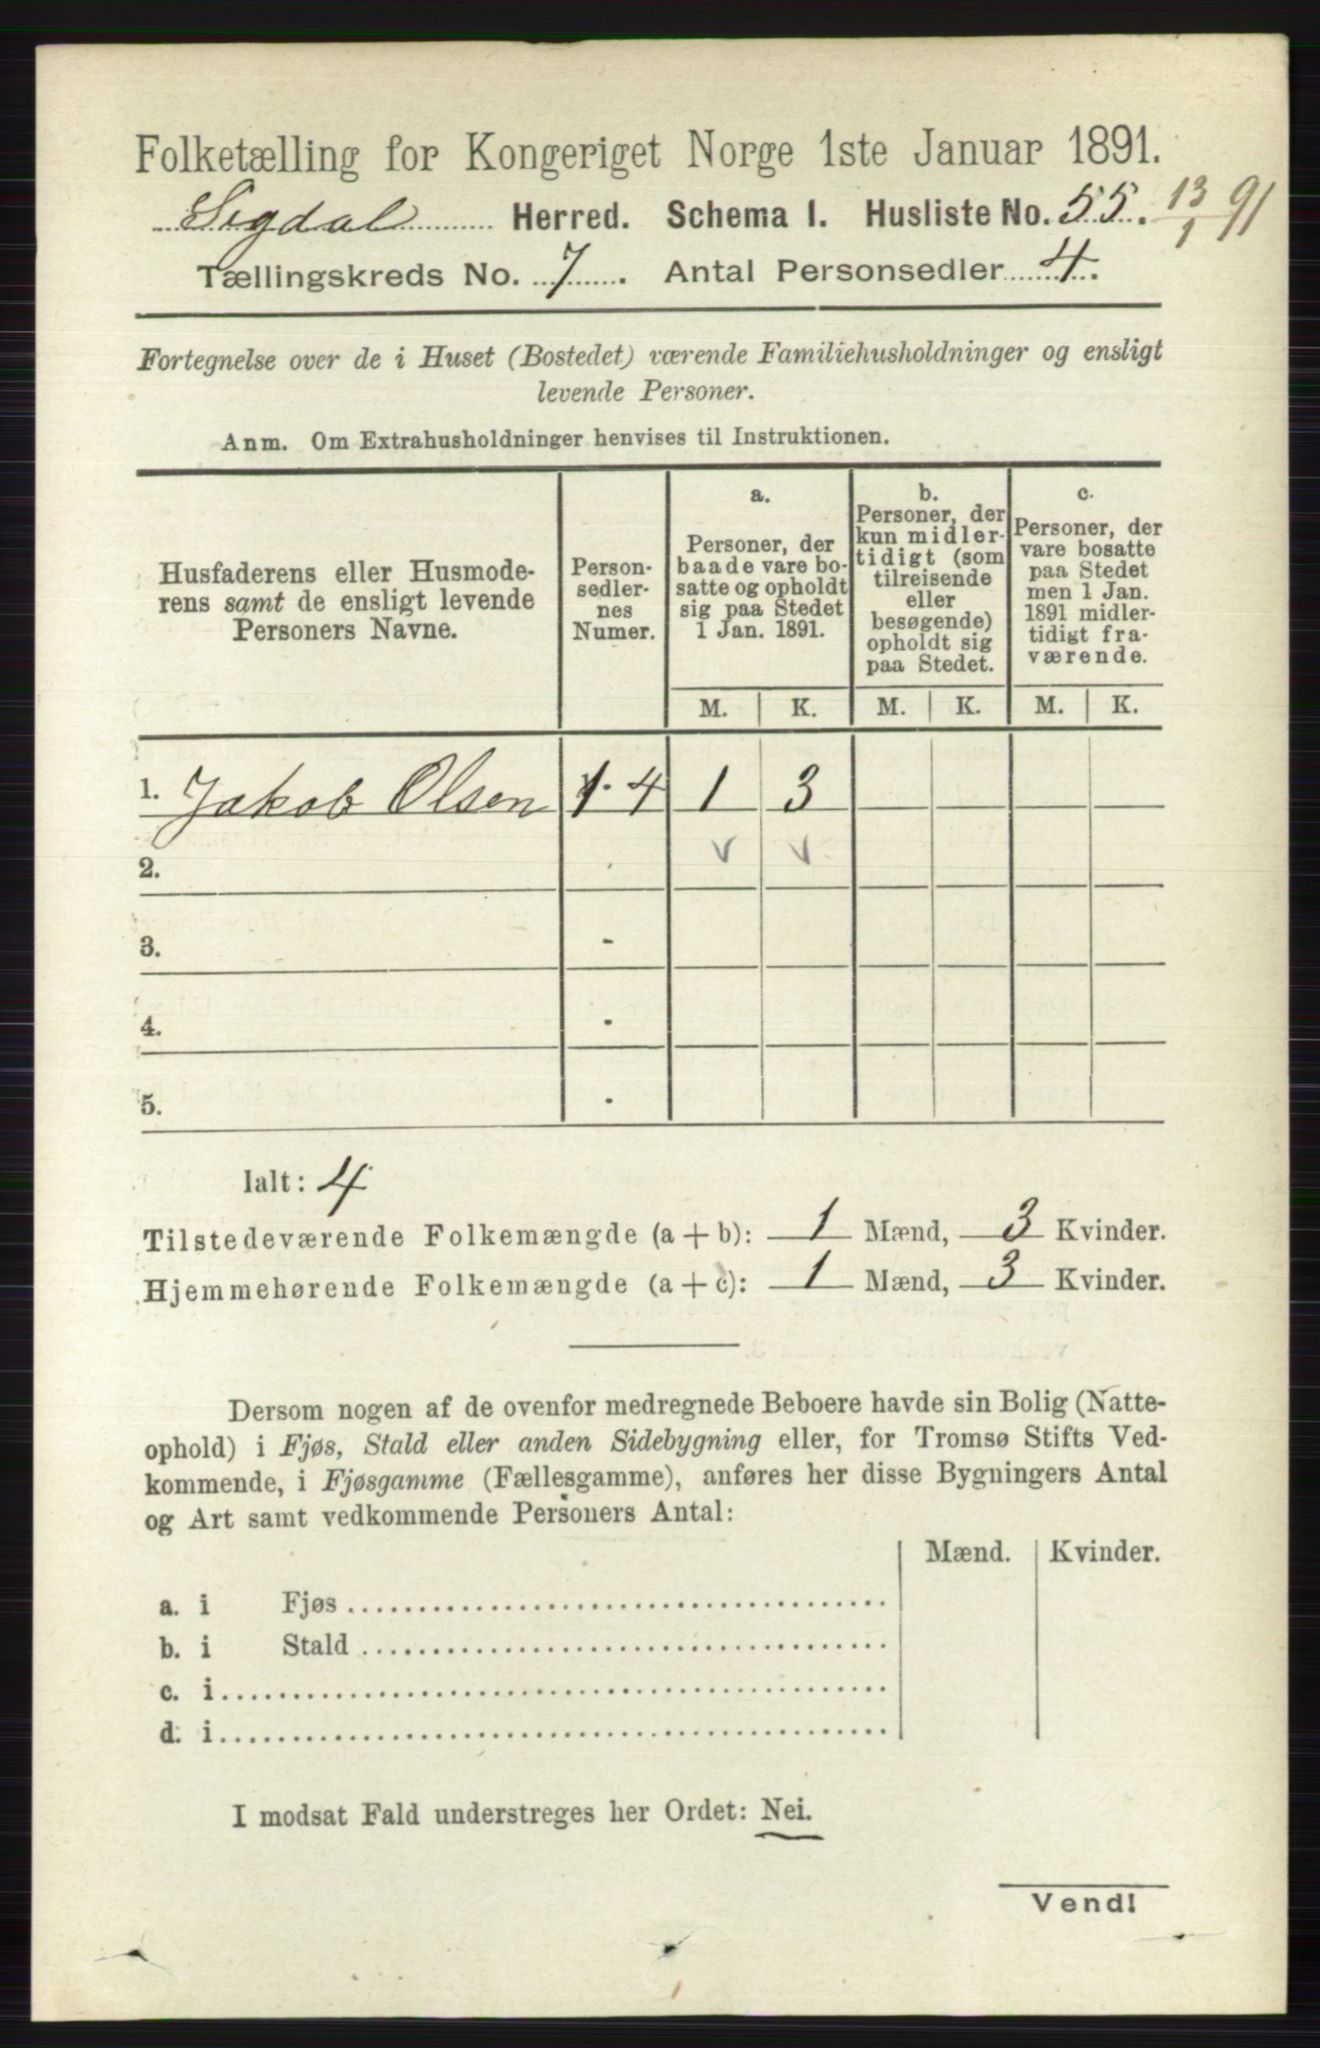 Folketælling for Kongeriget Norge 1ste Januar 1891.
Sigdal Herred. Schema I. Husliste No. 55. 13/1 91
Tællingskreds No. 7. Antal Personsedler 4.
Fortegnelse over de i Huset (Bostedet) værende Familiehusholdninger og ensligt
levende Personer.
Anm. Om Extrahusholdninger henvises til Instruktionen.
Husfaderens eller Husmode-
rens samt de ensligt levende
Personers Navne.
Person-
sedler-
nes
Numer.
a.
Personer, der
baade vare bo-
satte og opholdt
sig paa Stedet
1 Jan. 1891.
b.
Personer, der
kun midler-
tidigt (som
tilreisende
eller
besøgende)
opholdt sig
paa Stedet.
c.
Personer, der
vare bosatte
paa Stedet
men 1 Jan.
1891 midler-
tidigt fra-
værende.
M. K. M. K. M. K.
1. Jakob Olsen 1-4 1 3
2. v v
3. -
4. -
5. -
Ialt: 4
Tilstedeværende Folkemængde (a + b): 1 Mænd, 3 Kvinder.
Hjemmehørende Folkemængde (a + c): 1 Mænd, 3 Kvinder.
Dersom nogen af de ovenfor medregnede Beboere havde sin Bolig (Natte-
ophold) i Fjøs, Stald eller anden Sidebygning eller, for Tromsø Stifts Ved-
kommende, i Fjøsgamme (Fællesgamme), anføres her disse Bygningers Antal
og Art samt vedkommende Personers Antal:
Mænd. Kvinder.
a. i Fjøs
b. i Stald
c. i
d. i
I modsat Fald understreges her Ordet: Nei.
Vend!